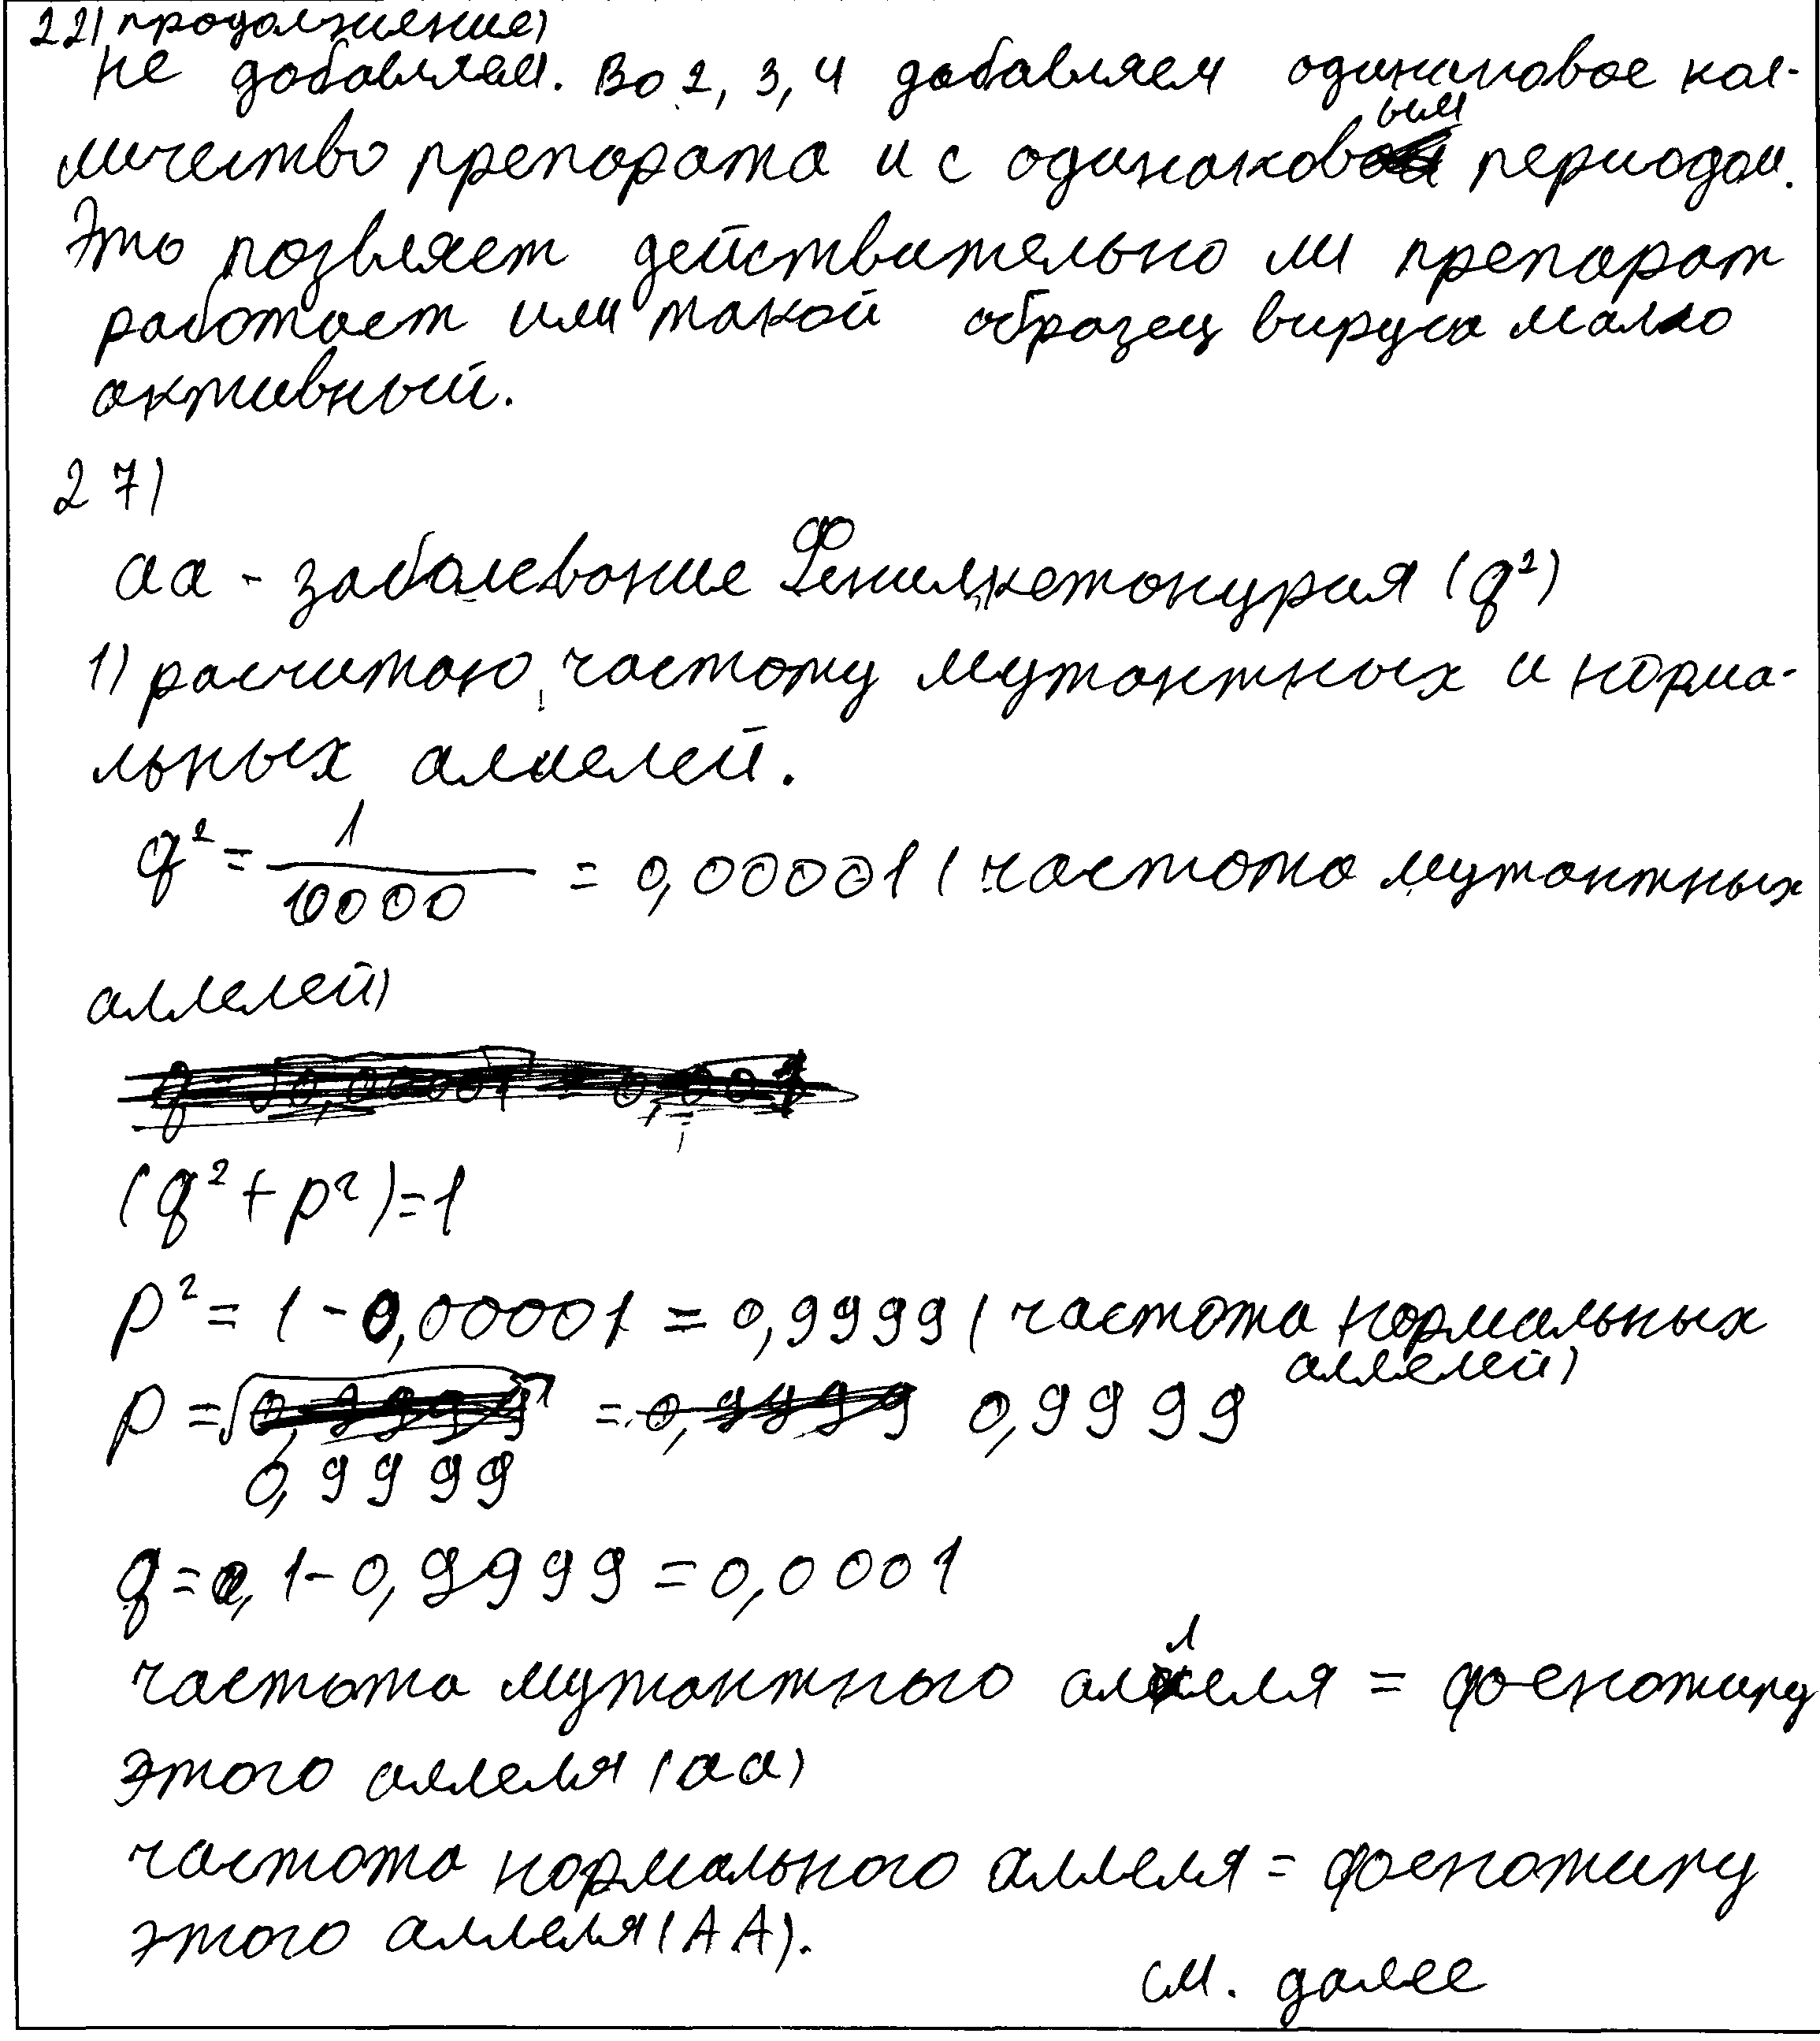 22) продолжение)
не добавляем. Во 2, 3, 4 добавляем одинаковое кол-
личество препарата и с одинаковым периодом.
Это позвляет действительно ли препарат
работает или такой образец вируса мало
активный.
27)
аа - заболевание Фенилкетонурия (q²)
1) расчитаю частоту мутантных и норма-
льных аллелей.
q² = 1/10000 = 0,00001 (частота мутантных
аллелей)
(q² + p²) = 1
p² = 1 - 0,00001 = 0,9999 (частота нормальных
аллелей)
p = √0,9999 = 0,9999
q = 1 - 0,9999 = 0,0001
частота мутантного аллеля = фенотипу
этого аллеля (аа)
частота нормального аллеля = фенотипу
этого аллеля (АА).
см. далее